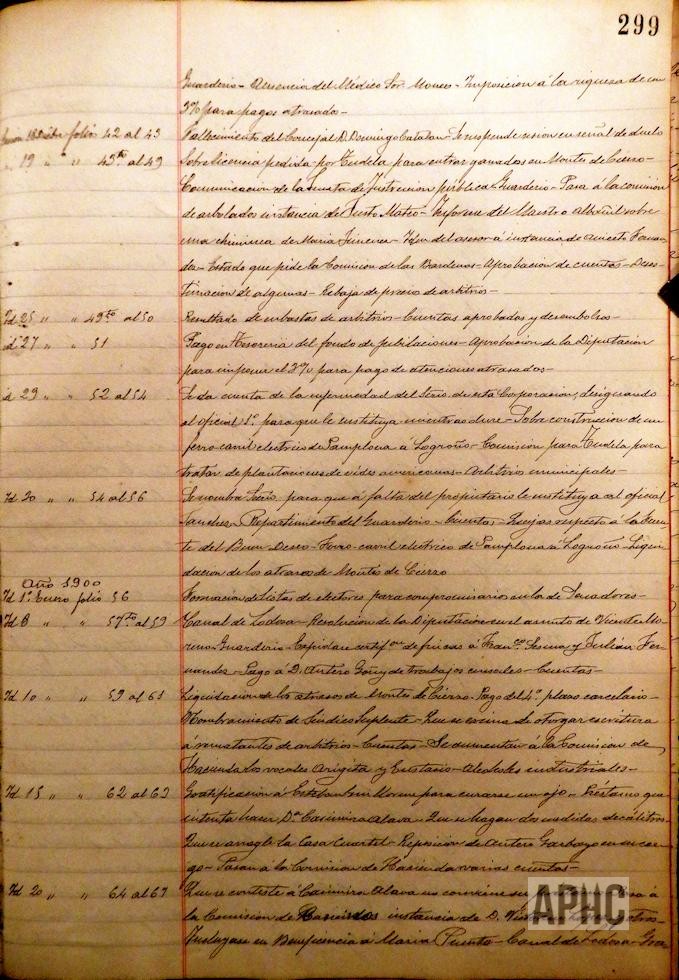 299
Guarderio - Ausencia del Médico Sor. Monees - Imposición á la riqueza de un
3% para pagos atrasados -
18 Dicbre folio 42 al 43 Fallecimiento del Concejal D. Domingo Catalan - Se suspende sesion en señal de duelo
19 " " 43 vto al 49 Sobre licencia pedida por Tudela para entrar ganados en Montes de Cierzo -
Comunicacion de la Junta de Instruccion pública - Guarderio - Pasa á la comision
de arbolados instancia de Justo Mateo - Informe del Maestro Albañil sobre
una chimenea de Maria Jimenez - Idem del asesor á instancia de Aniceto
- Estado que pide la Comision de las Bardenas - Aprobacion de cuentas - Deses-
timacion de algunas - Rebaja de precio de arbitrios -
Id 25 " " 49 vto al 50 Resultado de subastas de arbitrios - Cuentas aprobadas y desembolsos -
id 27 " " 51 Pago en Tesoreria del fondo de jubilaciones - Aprobacion de la Diputacion
para imponer el 3% para pago de atenciones atrasadas -
id 29 " " 52 al 54 Se da cuenta de la enfermedad del Srio. de esta Corporacion, designando
al oficial 1º para que le sustituya mientras dure - Sobre construccion de un
ferro-carril electrico de Pamplona á Logroño - Comision para Tudela para
tratar de plantaciones de vides americanas - Arbitrios municipales -
Id 30 " " 54 al 56 Se nombra Srio. para que á falta del propietario le sustituya al oficial
Sanchez - Repartimiento del Guarderio - Cuentas - Quejas respecto á la fuen-
te del Buen Deseo - Ferro-carril electrico de Pamplona á Logroño - Liqui-
dacion de los atrasos de Montes de Cierzo
Año 1900
Id 1º Enero folio 56 Formacion de listas de electores para compromisarios en la de Senadores -
Id 8 " " 57 vto al 59 Canal de Lodosa - Resolucion de la Diputacion en el asunto de Vicente Mo-
reno - Guarderio - Expidase certifon. de fincas á Franco. Sesma y Julián Fer-
nandez - Pago á D. Antero Goñi de trabajos censales - Cuentas -
Id 10 " " 59 al 61 Liquidacion de los atrasos de Montes de Cierzo - Pago del 4º plazo carcelario -
Nombramiento de Síndico Suplente - Que se exima de otorgar escritura
á rematantes de arbitrios - Cuentas - Se aumentan á la Comision de
Hacienda los vocales Arigita y Eustasio - Alcoholes industriales -
Id 15 " " 62 al 63 Gratificacion á Estéban Moreno para curarse un ojo - Préstamo que
intenta hacer Dª Casimira Alava - Que se hagan dos medidas decálitros
Que se arregle la Casa Cuartel - Reposicion de Antero Garbayo en su car-
go - Pasan á la Comision de Hacienda varias cuentas -
Id 20 " " 64 al 67 Que se conteste á Casimira Alava no conviene su á
la Comision de instancia de D.
Incluyase en Beneficencia á Maria Puerto - Canal de Lodosa -
APHC